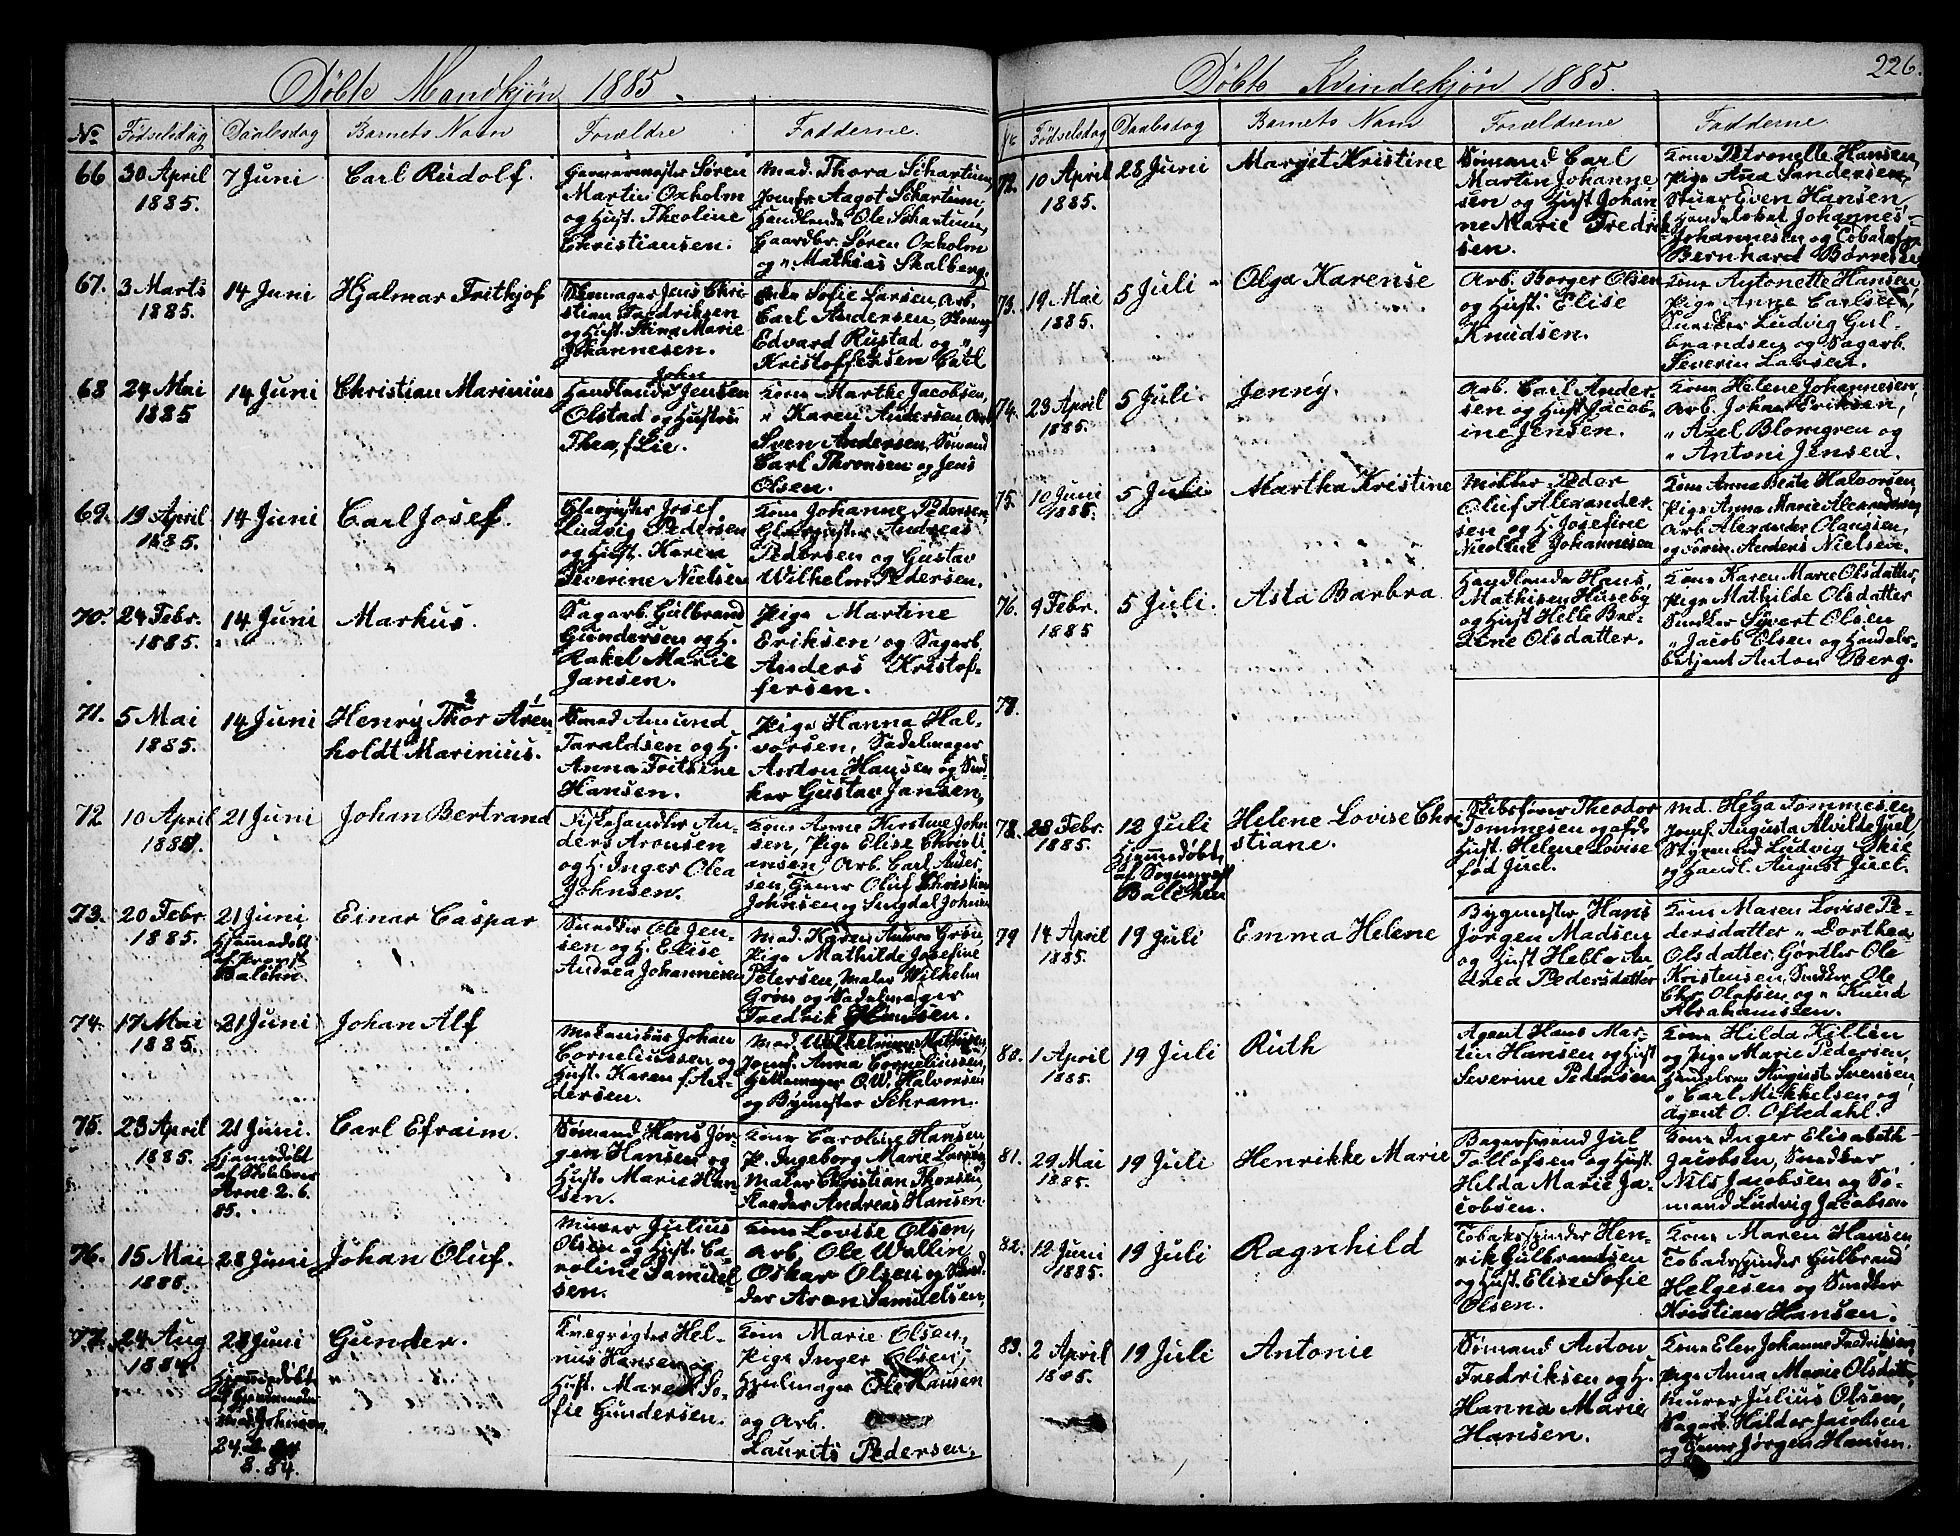 Døbte Mandkjøn 1885.
No Fødselsdag Daabsdag Barnets Navn Forældre Fadderne.
66 30 April 7 Juni Carl Rudolf. Garvermester Søren Mad. Thora Schartum,
1885. Martin Oxholm Jomfr Aagot Schartum,
og Hust. Theoline Handlende Ole Schartum,
Christiansen. Gaardbr. Søren Oxholm
og " Mathias Skalberg.
67. 3 Marts 14 Juni Hjalmar Frithjof Jens Chri Sofie Larsen, Arb.
1885. stian Fredriksen Carl Andersen,
og Hust. Stina Marie Edvard Rustad og "
Johannesen. Kristoffersen Carl
68 24 Mai 14 Juni Christian Marinius Handlende John Jensen Kone Marthe Jacobsen,
1885 Olstad og Hustru " Karen Andersen, Arb
Thea, f Lie. Sven Andersen, Sømand
Carl Thronsen og Jens
Olsen.
69. 19 April 14 Juni Carl Josef. Glasmester Josef Kone Johanne Pedersen,
1885. Ludvig Pedersen Glasmester Andreas
og Hust. Karen Pedersen og Gustav
Severine Nielsen Wilhelm Pedersen.
70. 24 Febr. 14 Juni Markus. Sagarb. Gulbrand Pige Martine
1885. Gundersen og H. Eriksen og Sagarb.
Rakel Marie Anders Kristof-
Jansen. fersen.
71. 5 Mai 14 Juni Henry Thor Aren- Smed Amund Pige Hanna Hal-
1885. holdt Marinius. Taraldsen og H. vorsen, Sadelmager
Anna Fritsine Anton Hansen og Sned
Hansen. ker Gustav Jansen,
72 10 April 21 Juni Johan Bertrand Fiskehandler An- Kone Anne Kirstine John
1885 ders Aronsen sen, Pige Elise Christi
og H. Inger Olea ansen, Arb. Carl Ander
Johnsen. sen, Garver Oluf Christian
Johnsen og Singdal Johnsen
73. 20 Febr. 21 Juni Einar Caspar Snedker Ole Jen- Mad. Karen Andrea Grøn
1885. Hjemmedøbt sen og H. Elise Pige Mathilde Josefine
af Provst Andrea Johannesen Petersen, Maler Wilhelm
Balchen. Grøn og Sadelmager
Fredrik Hansen.
74. 17 Mai 21 Juni Johan Alf Mekanikus Johan Mad. Wilhelmine Mathisen,
1885. Corneliussen og Jomf. Anna Corneliussen,
Hust. Karen f An- O.W. Halvorsen
dersen. og Bygmester Schram.
75. 23 April 21 Juni. Carl Efraim. Sømand Hans Jør- Kone Caroline Hansen,
1885. Hjemmedøbt gen Hansen og P. Ingeborg Marie Larsen,
af Skolelærer Hust. Marie Han- Maler Christian Thorsen,
Arne 2.6. sen. Andreas Hansen.
85.
76. 15 Mai 28 Juni Johan Oluf. Murer Julius Kone Lovise Olsen,
1885. Olsen og Hust. Ca- Arb. Ole Wallin,
roline Samuel- Oskar Olsen og
sen. Aron Samuelsen,
77. 24 Aug 28 Juni Gunder. Hel- Kone Marie Olsen,
1884. Hjemmedøbt nius Hansen og Pige Inger Olsen,
af Gjordemoder Hust. Maren So- Hjulmager Ole Hansen
Mad. Johnsen fie Gundersen. og Arb.
24. Laurits Pedersen.
8. 84.
226.
Døbte Kvindekjøn 1885.
No Fødselsdag Daabsdag Barnets Navn Forældrene Fadderne.
72. 10 April 28 Juni Margit Kristine Sømand Carl Kone Petronelle Hansen,
1885. Martin Johanne Pige Ana Sandersen,
sen og Hust Johan Even Hansen,
ne Marie Fredrik- Johannes
sen. Johannesen og
Bernhard Børresen
73. 19 Mai 5 Juli Olga Karense Arb. Borger Olsen Kone Antonette Hansen
1885. og Hust. Elise Pige Anne Carlsen,
Knudsen. Snedker Ludvig Gul-
brandsen og Sagarb.
Severin Larsen.
74. 23 April 5 Juli. Jenny. Arb. Carl Ander- Kone Helene Johannesen
1885. sen og Hust Jacob- Arb. Johan Eriksen,
ine Jensen. " Axel Blomgren og
" Antoni Jensen.
75. 10 Juni 5 Juli Martha Kristine Møller Peder Kone Anna Beate Halvorsen
1885. Oluf Alexander- Pige Anna Marie Alexandersen,
sen og H. Josefine Arb Alexander Olaussen,
Nicoline Johannesen og Anders Nielsen.
76. 9 Febr. 5 Juli. Asta Barbra. Handlende Hans Kone Karen Marie Olsdatter,
1885 Mathisen Huseby Pige Mathilde Olsdatter
og Hust Helle Bre- Snedker Sivert Olsen
Line Olsdatter. " Jacob Olsen og Handels-
betjent Anton Berg.
77.
78. 28 Febr. 12 Juli Helene Lovise Chri Skibsfører Theodor Md. Helga Tommesen
1885. Hjemmedøbt stiane. Tommesen og afd. Jomf. Augusta Alvilde Juel,
af Sogneprest Hust. Helene Lovise Styrmand Ludvig Skie
Balchen fød Juel. og Handl. August Juel.
79 14 April 19 Juli Emma Helene Bygmester Hans Kone Maren Lovise Pe-
1885. Jørgen Madsen dersdatter " Dorthea
og Hust Helle An Olsdatter, Gørtler Ole
drea Pedersdatter Kristensen, Snedker Ole
Chr. Olafsen og " Knud
Abrahamsen.
80. 1 April 19 Juli Ruth Agent Hans Mar- Kone Hilda Hillen
1885. tin Hansen og Hust og Pige Marie Pedersen,
Severine Pedersen August Svensen,
" Carl Mikkelsen og
Agent O. Oftedahl.
81. 29 Mai 19 Juli Henrikke Marie Bagersvend Jul Kone Inger Elisabeth
1885. Tollofsen og Hust. Jacobsen, Snedker
Hilda Marie Ja- Nils Jacobsen og Sø-
cobsen. mand Ludvig Jacobsen
82. 12 Juni 19 Juli Ragnhild Tobaksspinder Hen- Kone Maren Hansen,
1885. rik Gulbrandsen Tobaksspinder Gulbrand
og Hust. Elise Sofie Helgesen og Snedker
Olsen. Kristian Hansen.
83. 2 April 19 Juli Antonie Sømand Anton Kone Elen Johanne Fredriksen
1885. Fredriksen og H. Pige Anna Marie Olsdatter,
Hanna Marie Murer Julius Olsen,
Hansen. Sagarb. Hildor Jacobsen
og Jørgen Hansen.